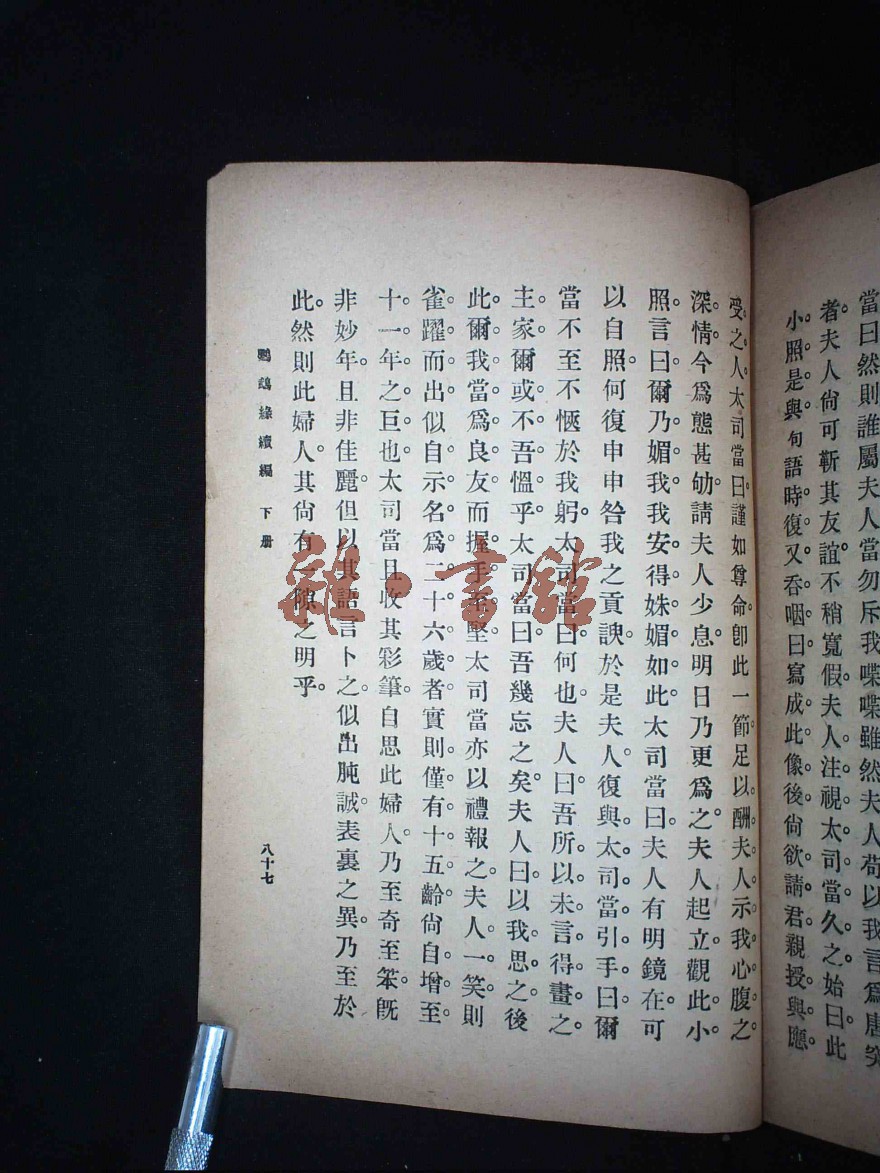 當曰然則誰屬夫人當勿斥我喋喋雖然夫人苟以我言爲唐突
者夫人尙可靳其友誼不稍寬假。夫人注視太司當久之始曰此
小照是與。句語時復又吞咽曰寫成此像後尙欲請君親授與應
受之人。太司當曰謹如尊命。卽此一節足以酬夫人示我心腹之
深情。今爲態甚劬請夫人少息。明日乃更爲之。夫人起立觀此小
照。言曰爾乃媚我。我安得姝媚如此。太司當曰。夫人有明鏡在。可
以自照。何復申申咎我之貢諛。於是夫人復與太司當引手曰。爾
當不至不愜於我躬。太司當曰。何也。夫人曰。吾所以未言得畫之
主家。爾或不吾慍乎。太司當曰。吾幾忘之矣。夫人曰。以我思之。後
此爾我當爲良友。而握手至堅。太司當亦以禮報之。夫人一笑。則
雀躍而出。似自示名爲二十六歲者。實則僅有十五齡。尙自增至
十一年之巨也。太司當且收其彩筆。自思此婦人乃至奇至笨。旣
非妙年。且非佳麗。但以其語言卜之。似出肫誠。表裏之異。乃至於
此。然則此婦人。其尙有一隙之明乎。
緣續編 下册
八十七
雜·書館